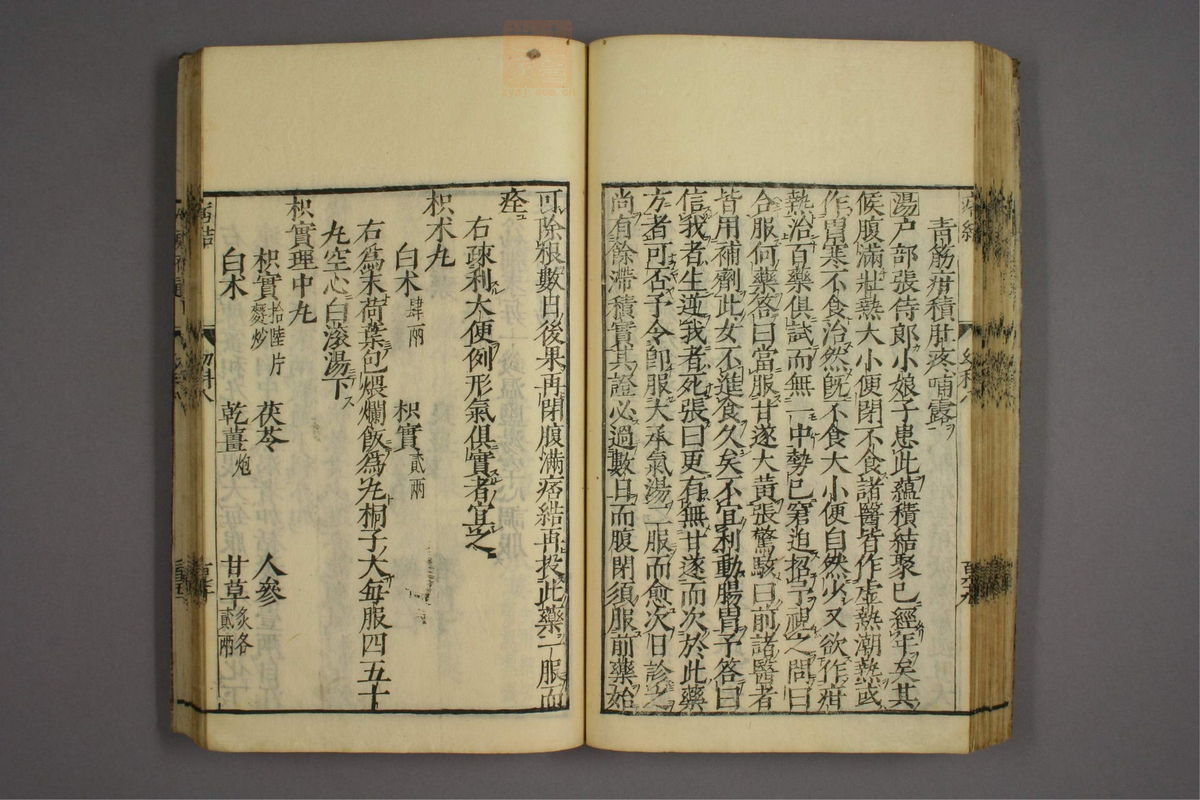 青筋疳積肚疼哺露
湯戸部張侍郎小娘子患此蘊積結聚已經年矣其
候腹滿壯熱大小便閉不食諸醫皆作虛熱潮熱或
作胃寒不食治然旣不食大小便自然少又欲作疳
熱治百藥俱試而無一中勢已窘迫招予視之問曰
合服何藥答曰當服甘遂大黃張驚駭曰前諸醫者
皆用補劑此女不進食久矣不宜利動腸胃予答曰
信我者生逆我者死張曰更有無甘遂而次於此藥
方者可否予令卽服大承氣湯二服而愈次日診之
尚有餘滯積實其證必過數日而腹閉須服前藥始
可除根數日後果再閉腹滿痞結再投此藥一服而
痊
右疎利大便例形氣俱實者宜之
枳朮丸
白朮肆兩 枳實貳兩
右爲末荷葉包煨爛飯爲丸桐子大每服四五十
丸空心白滚湯下
枳實理中丸
枳實拾陸片麩炒 茯苓 人參
白朮 乾薑炮 甘草炙各貳兩